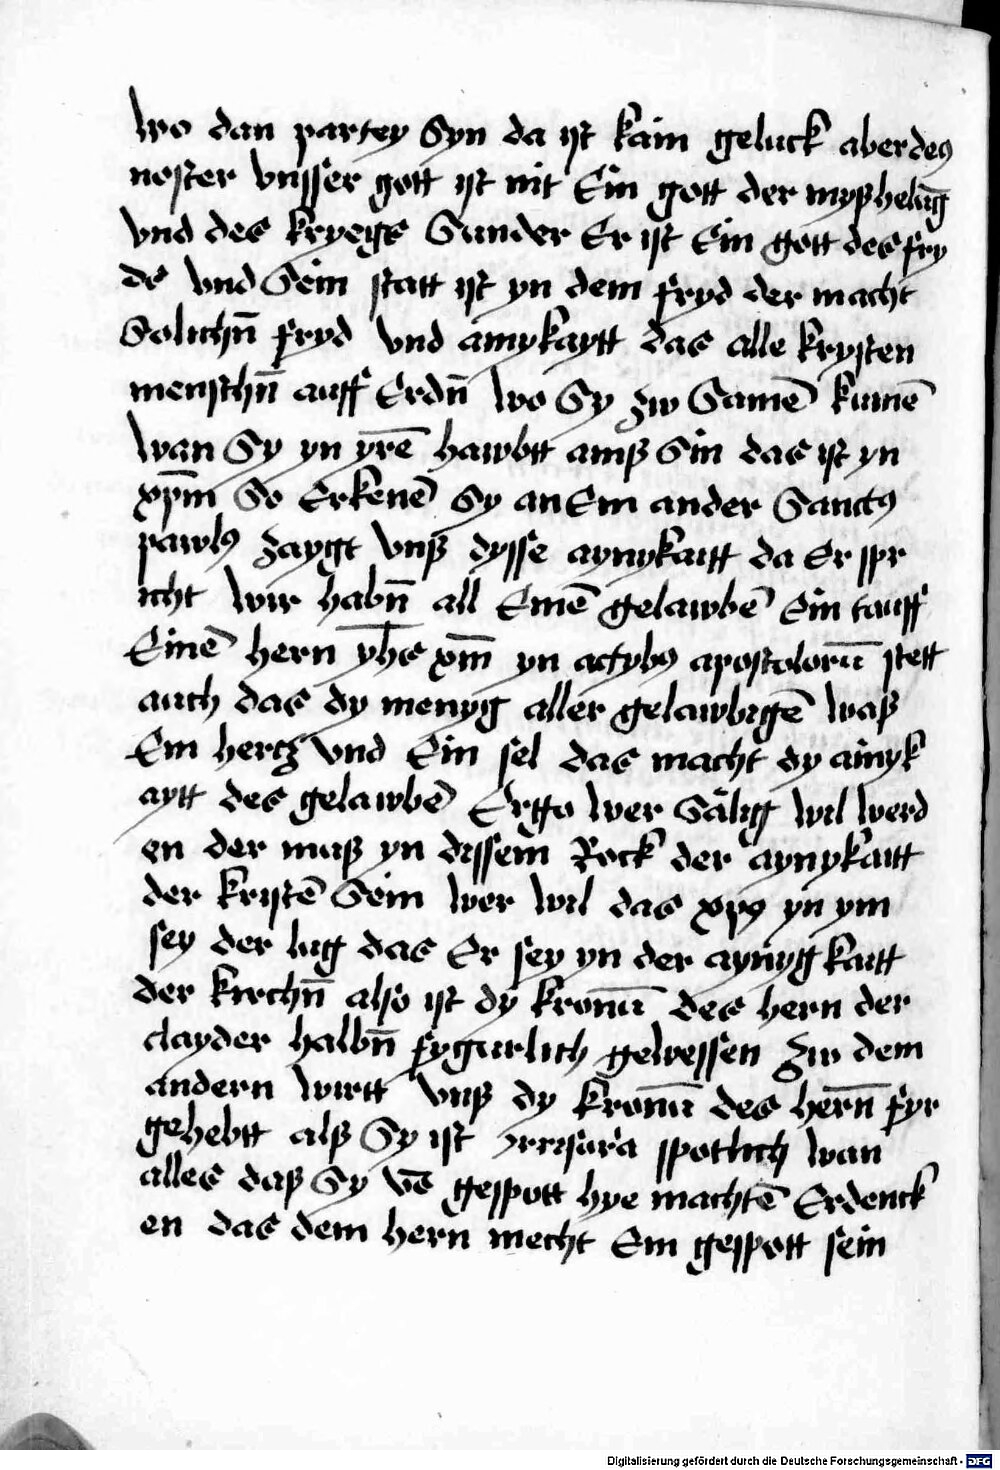 wo dan partey Syn da ist kain geluck aber deus
noster vnsser gott ist nit Ein gott der myßhelūg
vnd des kryegs Sunder Er ist Ein gott des fry
ds vnd Sein statt ist yn dem fryd der macht
Solichn̄ fryd vnd ainykaytt das alle krysten
menschn̄ auff Erdn̄ wo Sy zw Samē kumē
wan Sy yn yrē hawbtt ainß Sin das ist yn
xp̄m So Erkenē Sy an Ein ander Sanctus
pawlus zaygt vnß dysse aynykaitt da Er spr
icht wir habn̄ all Einē gelawbē Ein tauff
Einē hern yh̄s xm̄ yn actybus apostolorū stett
auch das dy menyg aller gelawbigē waß
Ein hertz vnd Ein sel das macht dy ainyk
aytt des gelawbē Ergo wer Sälig wil werd
en der muß yn dissem Rock der aynykaitt
der kristē Sein wer wil das xp̄s yn ym
sey der lug das Er sey yn der aynygkaitt
der kirchn̄ also ist dy kronū des hern der
clayder halbn̄ fygurlich gewessen zw dem
andern wirtt vnß dy kronū des hern̄ fyr
gehebtt alß Sy ist irrisoria spotlich wan
alles daß Sy vō gespott hye machtē Erdenck
en das dem hern mecht Ein gespott sein
Digitalisierung gefördert durch die Deutsche Forschungsgemeinschaft - DFG